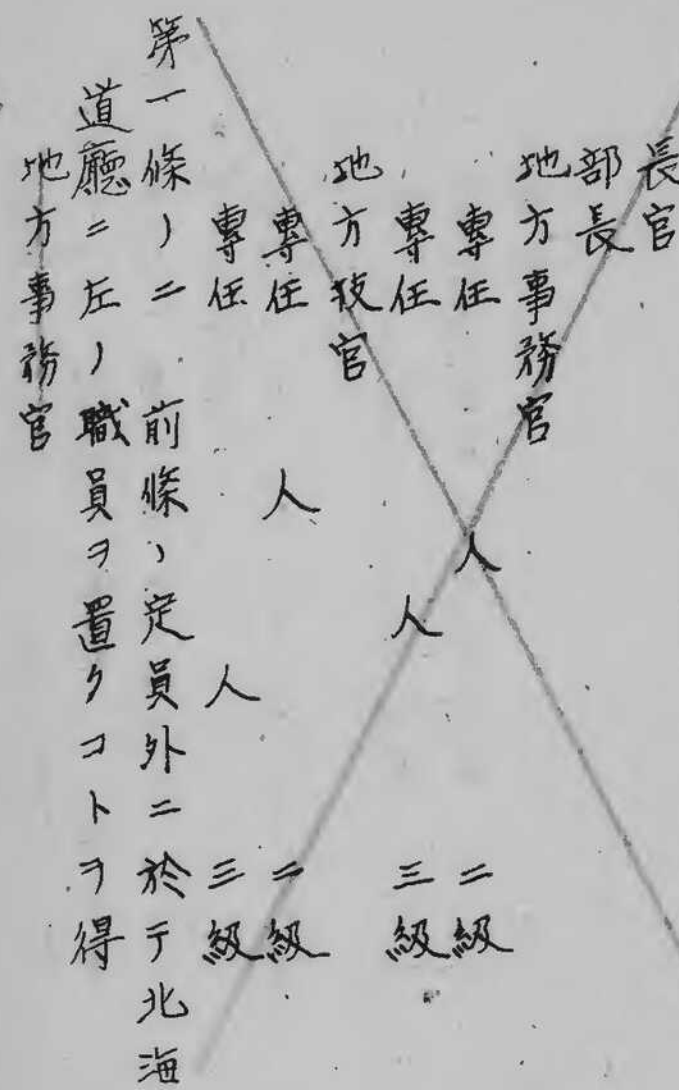 長官
部長
地方事務官
専任 人 二級
専任 人 三級
地方技官
専任 人 二級
専任 人 三級
第一條ノ二 前條ノ定員外ニ於テ北海
道廳ニ左ノ職員ヲ置クコトヲ得
地方事務官